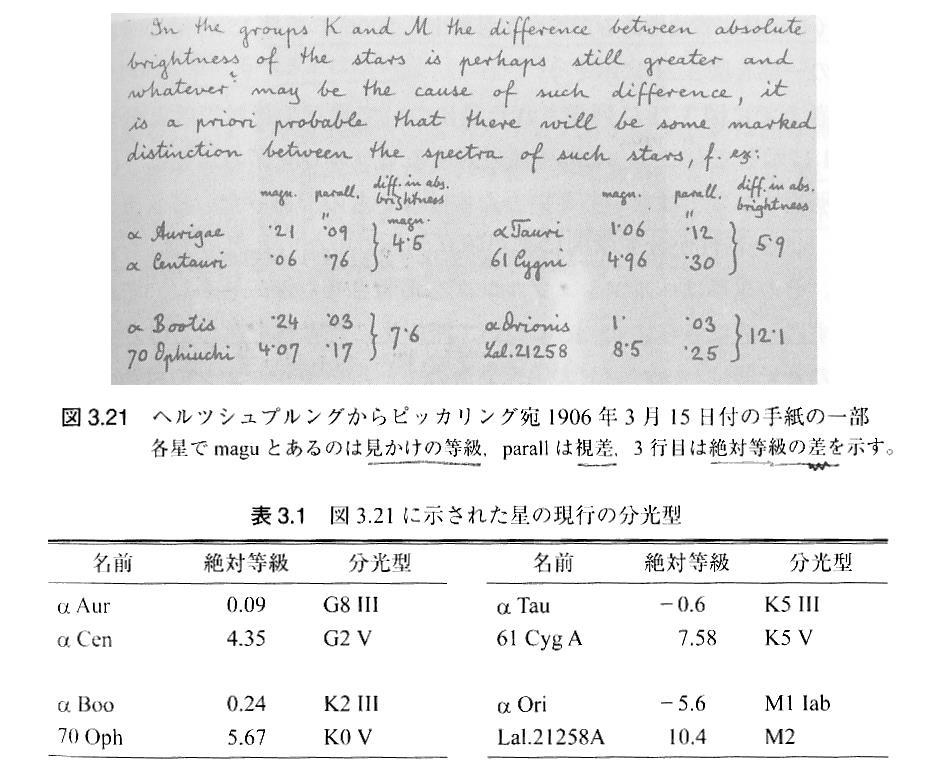 In the groups K and M the difference between absolute
brightness of the stars is perhaps still greater and
whatever may be the cause of such difference, it
is a priori probable that there will be some marked
distinction between the spectra of such stars, f. ex:
magn. parall. diff. in abs. brightness magn. parall. diff. in abs. brightness
" magn. "
α Aurigae ·21 ·09 } 4·5 α Tauri 1·06 ·12 } 5·9
α Centauri ·06 ·76 61 Cygni 4·96 ·30
α Bootis ·24 ·03 } 7·6 α Orionis 1· ·03 } 12·1
70 Ophiuchi 4·07 ·17 Lal.21258 8·5 ·25
図 3.21 ヘルツシュプルングからピッカリング宛 1906 年 3 月 15 日付の手紙の一部
各星で magu とあるのは見かけの等級,parall は視差,3 行目は絶対等級の差を示す。
表 3.1 図 3.21 に示された星の現行の分光型
名前 絶対等級 分光型 名前 絶対等級 分光型
α Aur 0.09 G8 III α Tau −0.6 K5 III
α Cen 4.35 G2 V 61 Cyg A 7.58 K5 V
α Boo 0.24 K2 III α Ori −5.6 M1 Iab
70 Oph 5.67 K0 V Lal.21258A 10.4 M2